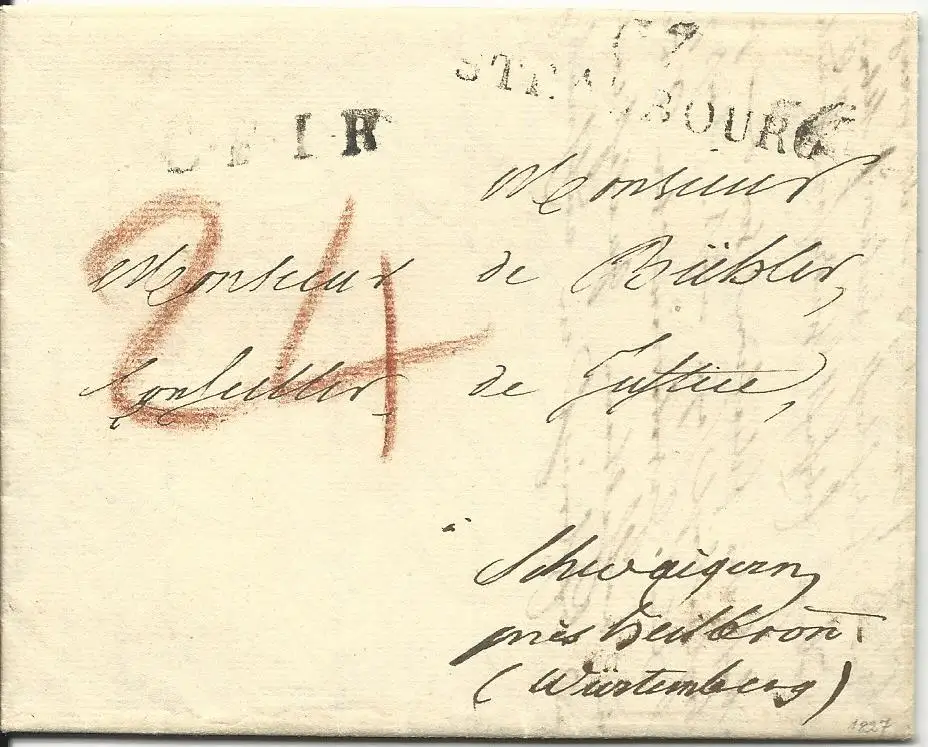 67
STRASBOURG
C F I R
24
Monsieur
Monsieur de Bühler,
Conseiller de Justice,
à
Schwaigern
près Heilbronn
(Würtemberg)
1827